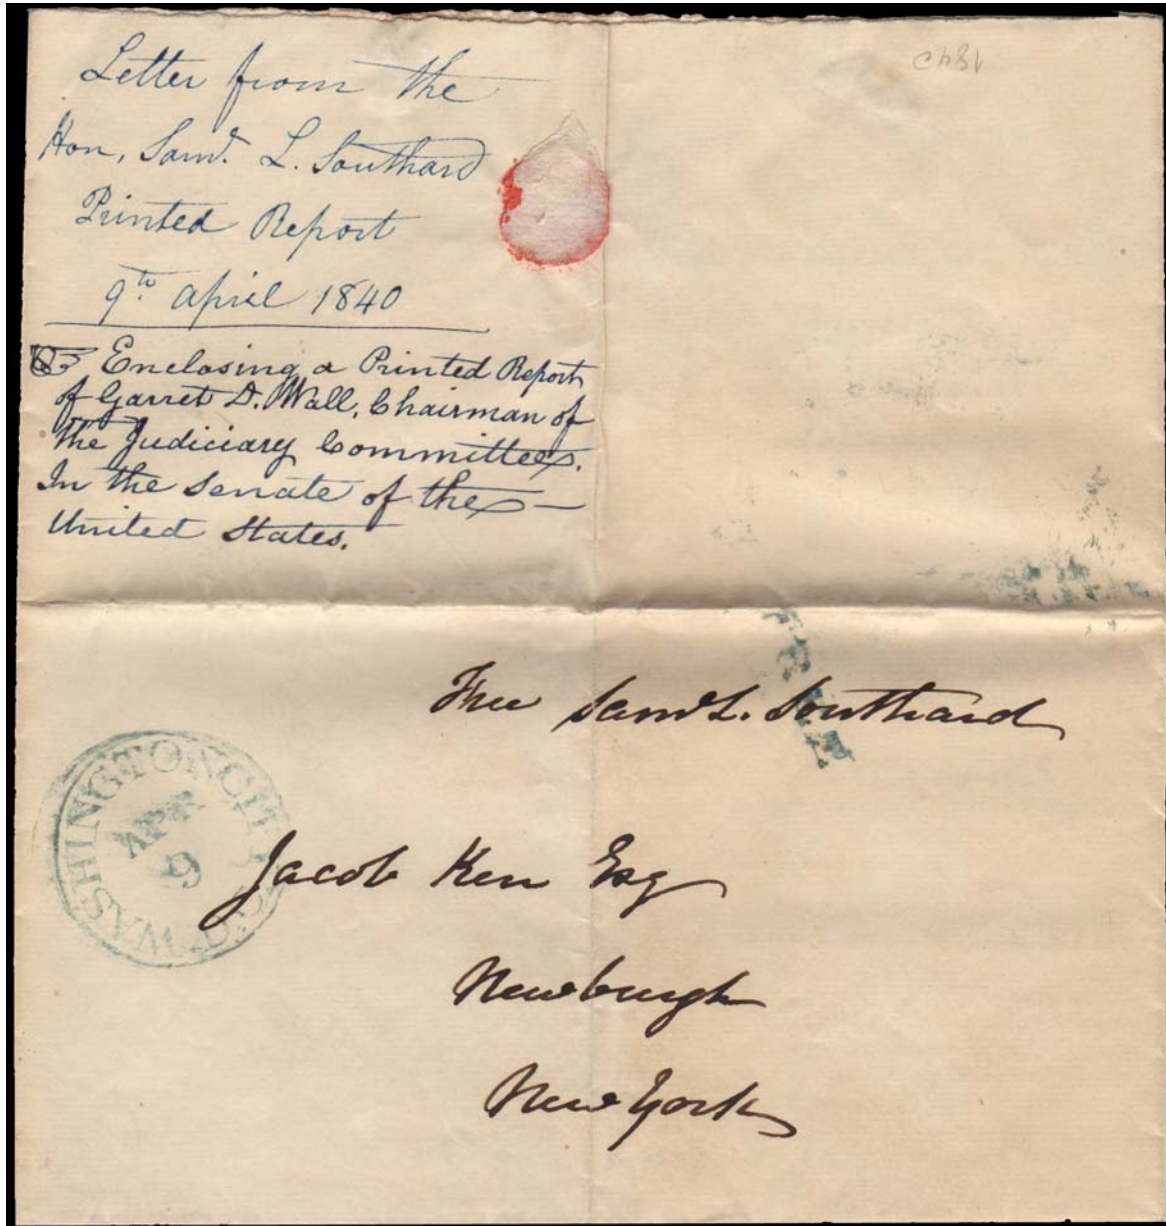 Letter from the
Hon, Saml. L. Southard
Printed Report
9th. April 1840
☞ Enclosing a Printed Report
of Garret D. Wall, Chairman of
the Judiciary Committee.
In the Senate of the —
United States.
1840
FREE
Free Saml. L. Southard
WASHINGTON CITY D.C.
APR
9
Jacob Kerr Esq
Newburgh
New York